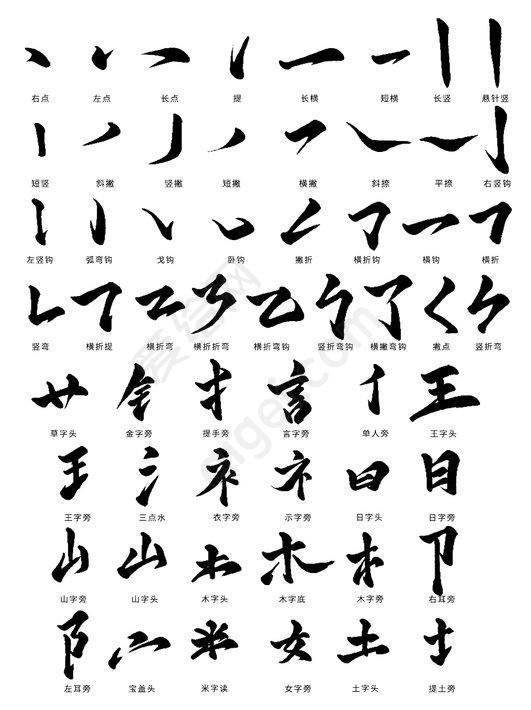 右点 左点 长点 提 长横 短横 长竖 悬针竖
短竖 斜撇 竖撇 短撇 横撇 斜捺 平捺 右竖钩
左竖钩 弧弯钩 戈钩 卧钩 撇折 横折钩 横钩 横折
竖弯 横折提 横折弯 横折折弯 横折弯钩 竖折弯钩 横撇弯钩 撇点 竖折弯
草字头 金字旁 提手旁 言字旁 单人旁 王字头
王字旁 三点水 衣字旁 示字旁 日字头 日字旁
山字旁 山字头 木字头 木字底 木字旁 右耳旁
左耳旁 宝盖头 米字读 女字旁 土字头 提土旁